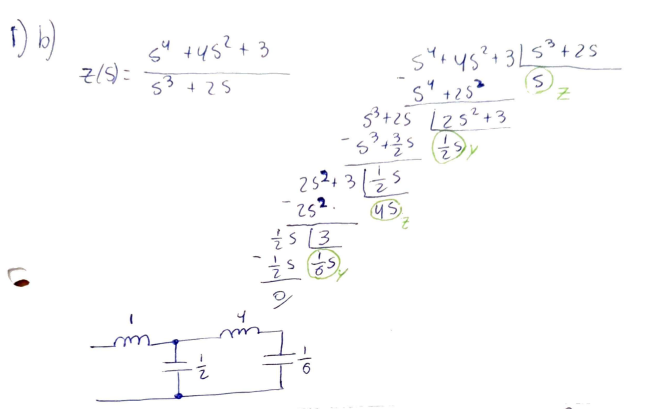 1) b)
Z(S) = (S⁴ + 4S² + 3) / (S³ + 2S)
S⁴ + 4S² + 3 | S³ + 2S
- S⁴ + 2S² (S) Z
S³ + 2S | 2S² + 3
- S³ + 3/2 S (1/2 S) Y
2S² + 3 | 1/2 S
- 2S². (4S) Z
1/2 S | 3
- 1/2 S (1/6 S) Y
0
1 4
1/2 1/6